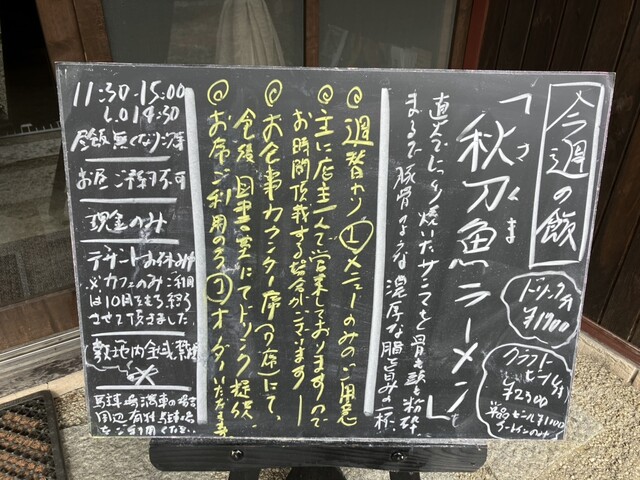 今週の飯
「秋刀魚ラーメン」
さくま
ドリンク付
¥1700
クラフト
ビール付
¥2300
単品ビール¥1100
直火でじっくり焼いたサンマを骨ごと頭も粉砕
まるで豚骨のような濃厚な脂旨みの一杯
◎週替わり①メニューのみのご用意
◎主に店主一人で営業しておりますので
お時間頂戴する場合がございます
◎お食事カウンター席(7席)にて、
食後、図書室にてドリンク提供
◎お席ご利用の方①オーダーいただきます
11:30-15:00
L.O 14:30
昼飯無くなり次第
お昼ご予約不可
現金のみ
デザートお休み中
※カフェのみご利用
は10月をもち終了
させて頂きました。
敷地内全域禁煙
駐車場満車の場合
周辺有料駐車場
をご利用ください